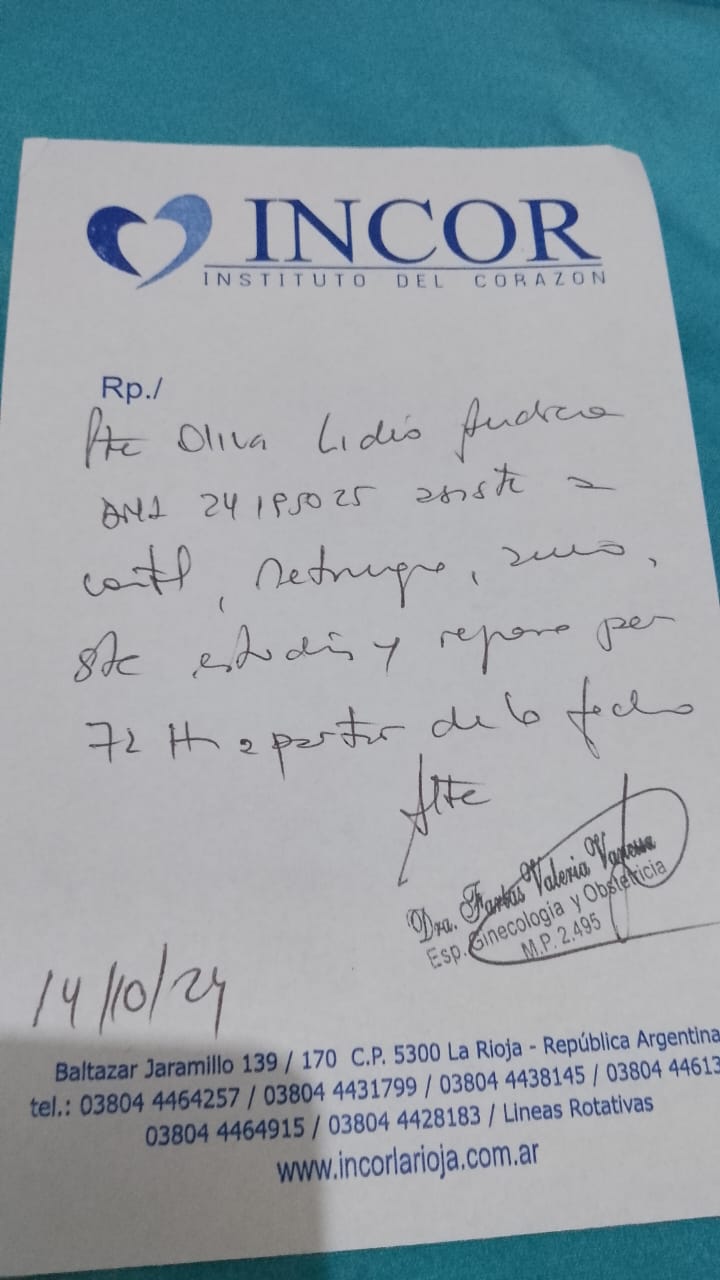 INCOR
INSTITUTO DEL CORAZON
Rp./
Pte Oliva Lidia Andrea
DNI 24195025 asiste a
control,
Ste estudios y reposo por
72 Hs a partir de la fecha
Atte
Dra. Farias Valeria Vanessa
Esp. Ginecología y Obstetricia
M.P. 2.495
14/10/24
Baltazar Jaramillo 139 / 170 C.P. 5300 La Rioja - República Argentina
tel.: 03804 4464257 / 03804 4431799 / 03804 4438145 / 03804 44613
03804 4464915 / 03804 4428183 / Lineas Rotativas
www.incorlarioja.com.ar